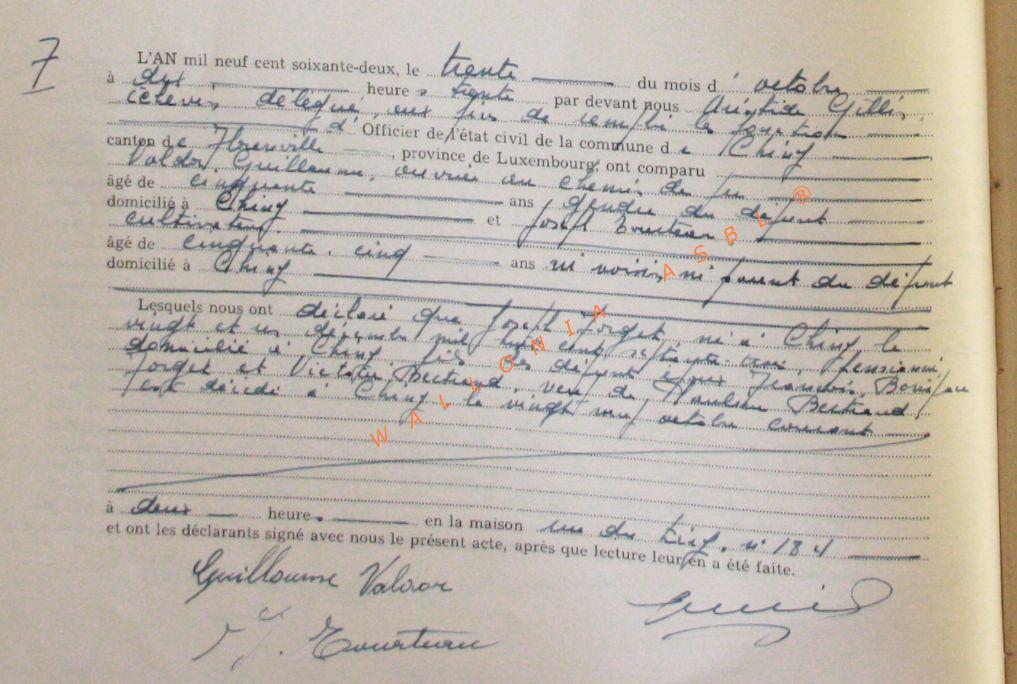 7
L'AN mil neuf cent soixante-deux, le trente du mois d' octobre
à dix heure s trente par devant nous Aristide Gillis,
échevin délégué, aux fins de remplir les fonctions
d' Officier de l'état civil de la commune d e Chiny
canton de Florenville, province de Luxembourg, ont comparu
Valdor, Guillaume, ouvrier au chemin de fer
âgé de cinquante ans gendre du défunt
domicilié à Chiny et Joseph
cultivateur,
âgé de cinquante-cinq ans ni voisin, ni parent du défunt
domicilié à Chiny
Lesquels nous ont déclaré que Joseph Forget, né à Chiny le
vingt et un décembre mil huit cent septante-trois, pensionné,
domicilié à Chiny, fils des défunts époux François, Boniface
Forget et Victoire Bertrand, veuf de Bertrand,
est décédé à Chiny, le vingt neuf octobre courant
à deux heure s en la maison rue du n° 184
et ont les déclarants signé avec nous le présent acte, après que lecture leur en a été faite.
Guillaume Valdor
J.
WALLONIA ASBL ®